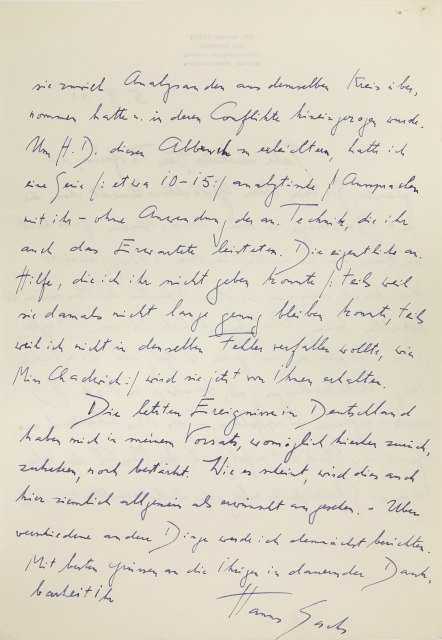 sie zuviel Analysanden aus demselben Kreis über-
nommen hatte u. in deren Conflikte hineingezogen wurde.
Um H. D. diesen Abbruch zu erleichtern, hatte ich
eine Serie /: etwa 10-15 :/ analytische Aussprachen
mit ihr – ohne Anwendung der an. Technik, die ihr
auch das Erwartete leisteten. Die eigentliche an.
Hilfe, die ich ihr nicht geben konnte /: teils weil
sie damals nicht lange genug bleiben konnte, teils
weil ich nicht in denselben Fehler verfallen wollte, wie
Miss Chadwick :/ wird sie jetzt von Ihnen erhalten.
Die letzten Ereignisse in Deutschland
haben mich in meinem Vorsatz, womöglich hieher zurück-
zukehren, noch bestärkt. Wie es scheint, wird dies auch
hier ziemlich allgemein als erwünscht angesehen. – Über
verschiedene andere Dinge werde ich demnächst berichten.
Mit besten Grüssen an die Ihrigen in dauernder Dank-
barkeit Ihr
Hanns Sachs